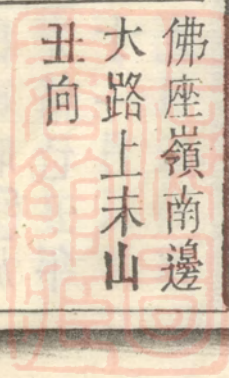 佛座嶺南邊
大路上未山
丑向